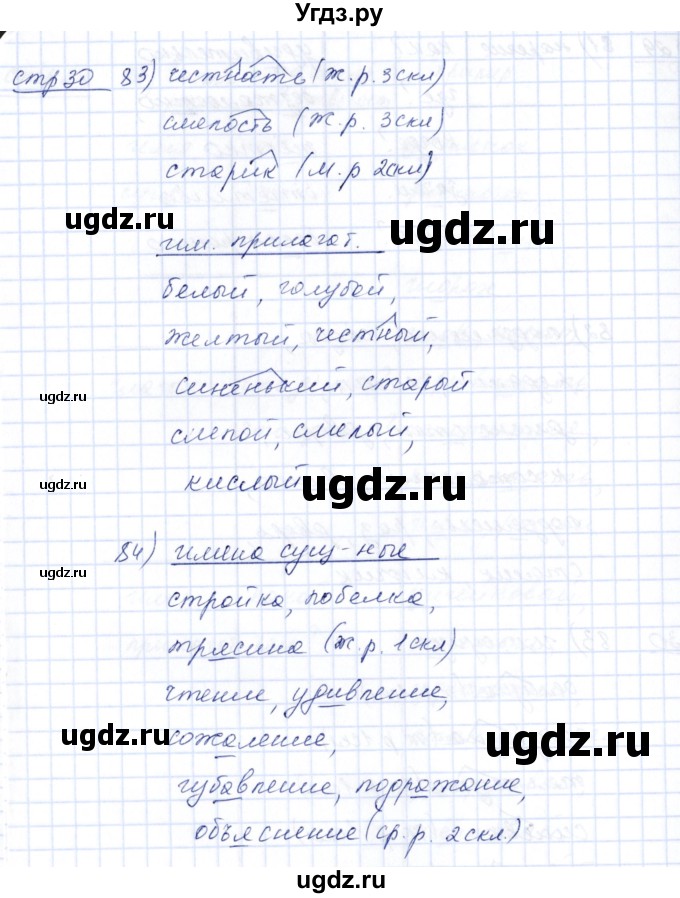 Угдз.ру
стр30 83) честность (ж.р. 3скл)
слепость (ж.р. 3скл)
старик (м.р 2скл)
ugdz.ru
ugdz.ru
им. прилагат.
белый, голубой,
желтый, честный,
синенький, старой
ugdz.ru
слепой, смелый,
кислый
ugdz.ru
ugdz.ru
84) имена сущ-ные
ugdz.ru
стройка, побелка,
трясина (ж.р. 1скл)
чтение, удивление,
сожаление,
ugdz.ru
ugdz.ru
губавление, подражание,
объяснение (ср.р. 2скл.)
ugdz.ru